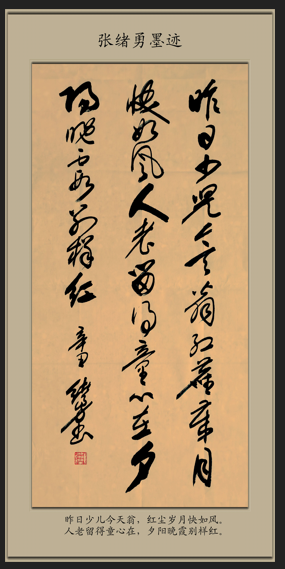 张绪勇墨迹
昨日少兒今天翁红塵歲月
快如風人老留得童心在夕
陽晚霞别樣红
辛丑 绪勇书
昨日少儿今天翁，红尘岁月快如风。
人老留得童心在，夕阳晚霞别样红。